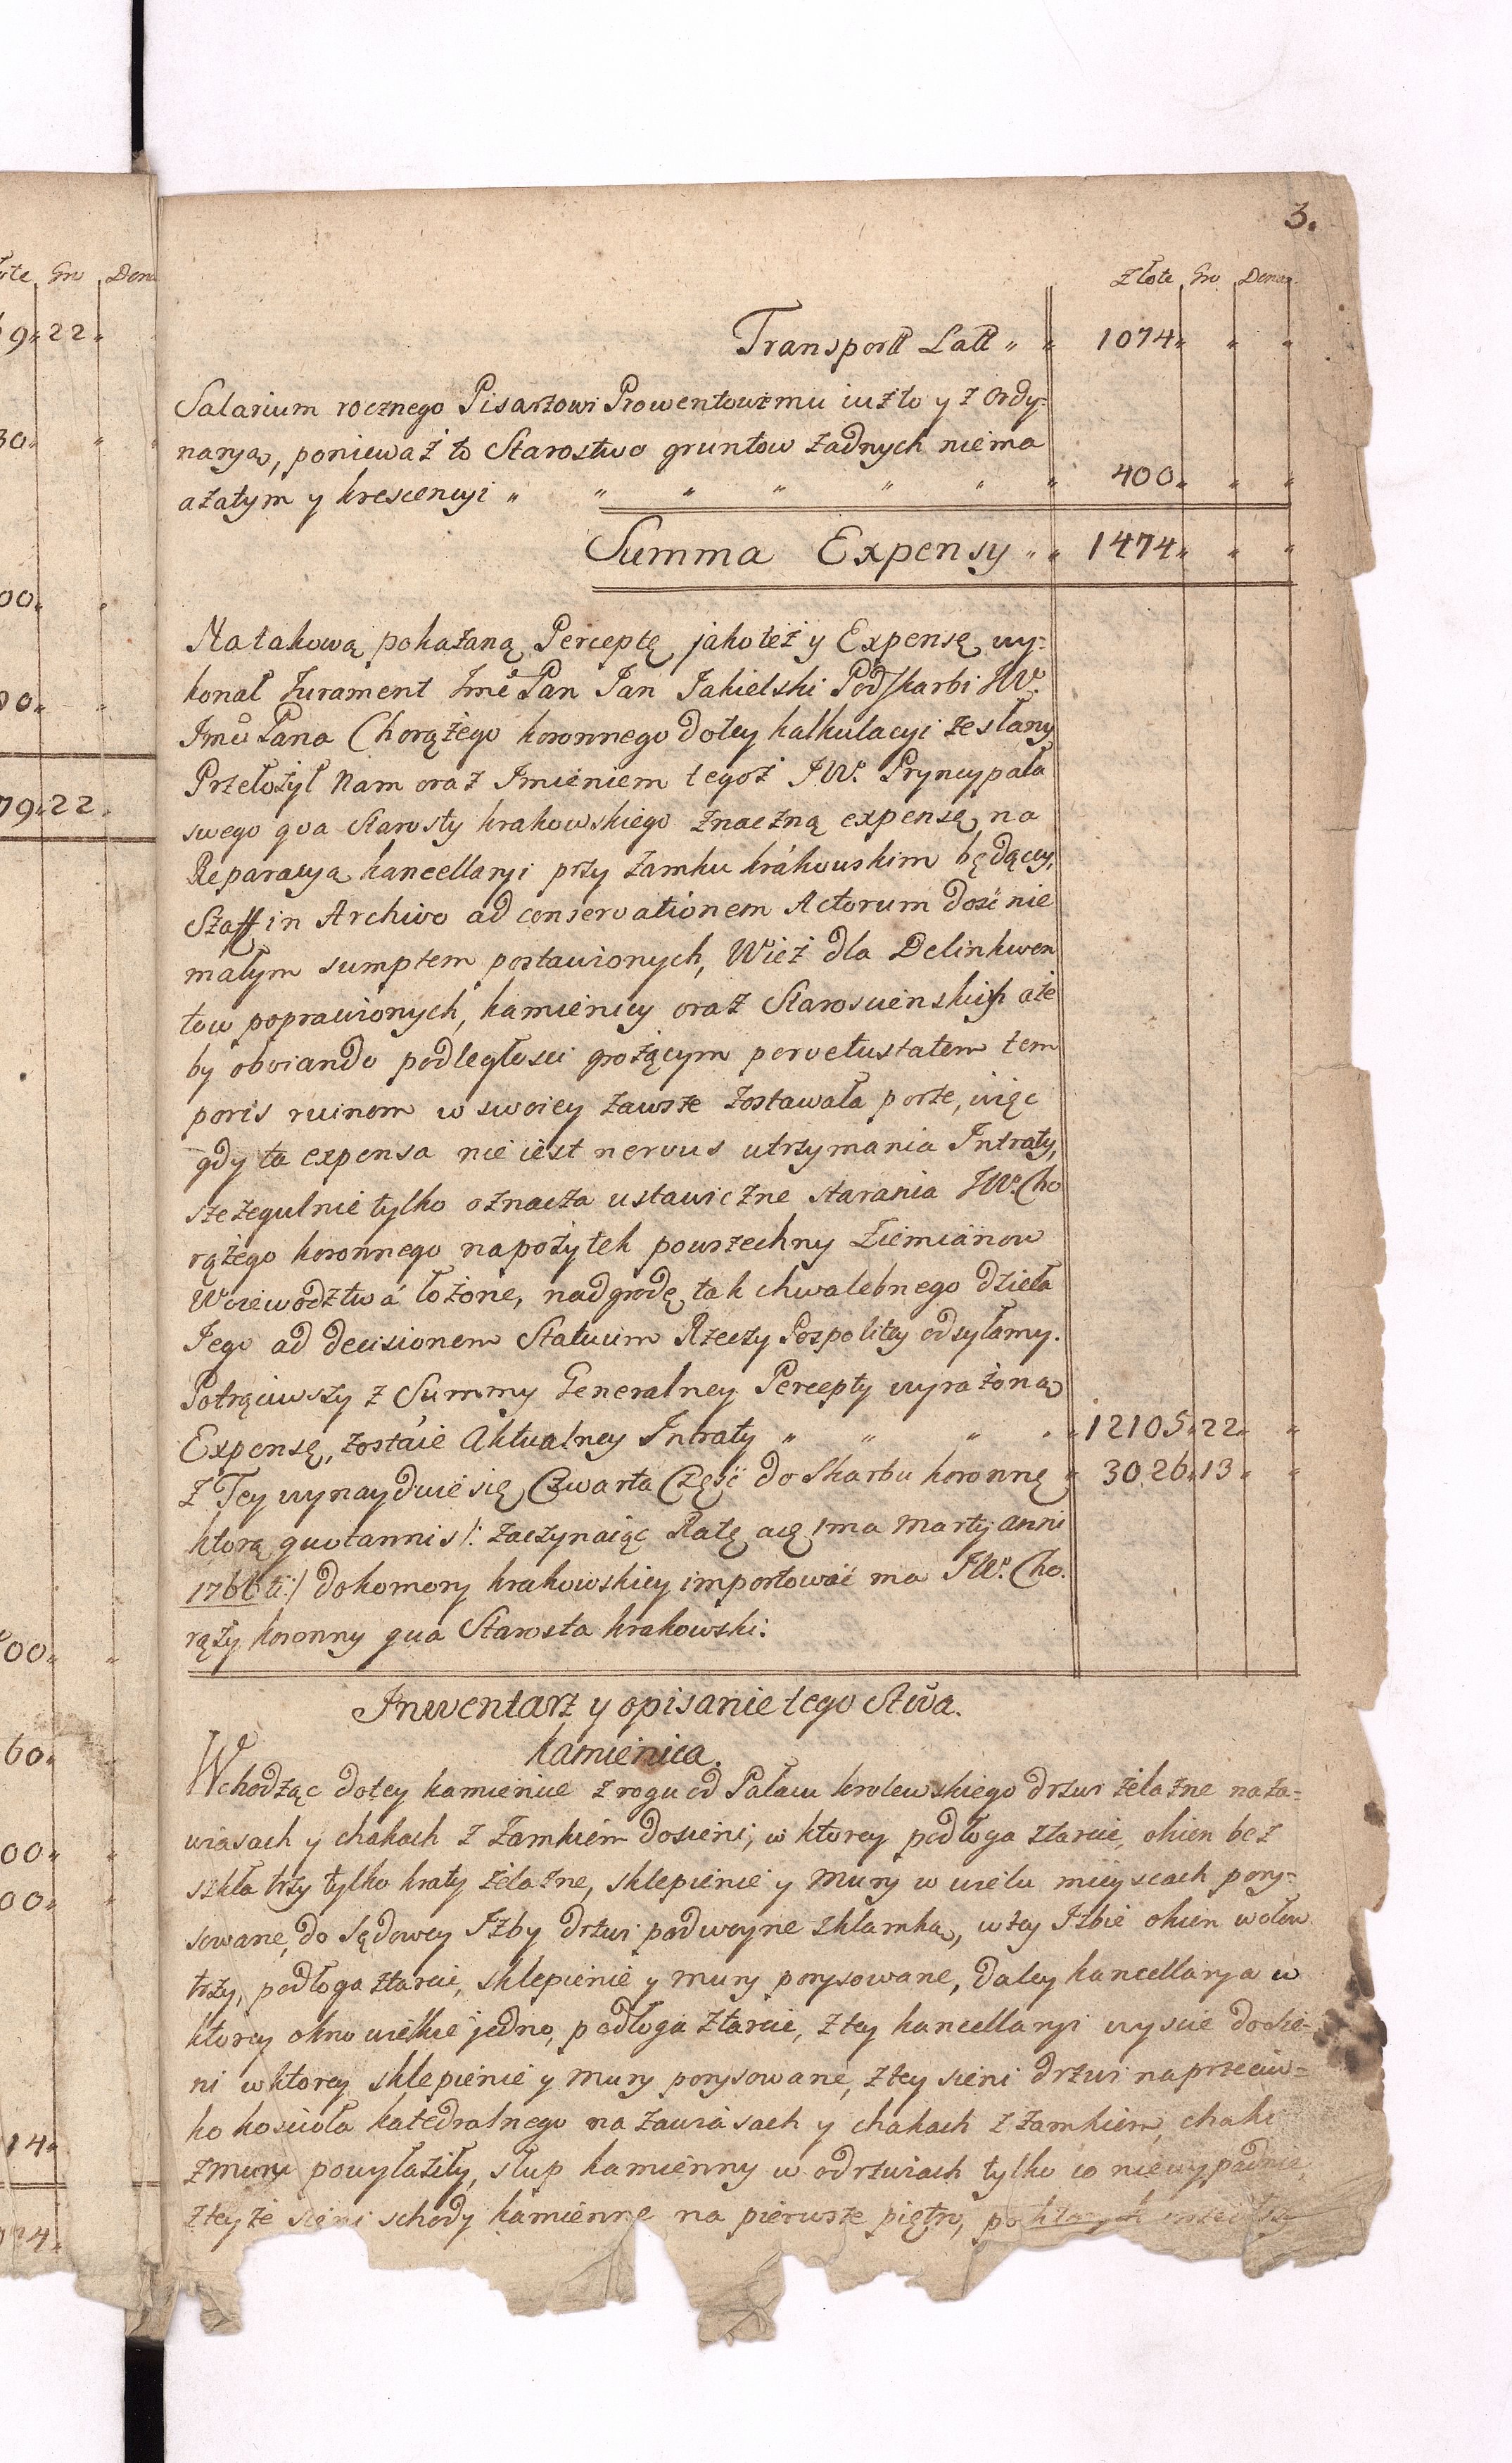 3.
Złote Gro Dena.
Transportt Latt „ „ 1074„ „ „
Salarium rocznego Pisarzowi Prowentowemu iuż to y z Ordy:
naryą, ponieważ to Starostwo gruntow żadnych niema
azatym y krescencyi „ „ „ „ „ „ „ 400„ „ „
Summa Expensy „ „ 1474„ „ „
Natakową pokazaną Perceptę jakoteż y Expensę wy:
konał Jurament Jmć Pan Jan Jakielski Podskarbi JW.
Jmci Pana Chorążego koronnego dotey kalkulacyi zesłany
Przełożył Nam oraz Jmieniem tegoż JW. Pryncypała
swego qva Starosty krakowskiego znaczną expensę na
Reparacyą kancellaryi przy zamku krákowskim będącey,
Szaff in Archivo ad conservationem Actorum dość nie
małym sumptem postawionych, Wież dla Delinkwen
tow poprawionych, kamienicy oraz Starościnskich aże
by obviando podległości grożącym pervetustatem tem
poris ruinom w swoiey zawsze zostawała porze, więc
gdy ta expensa nie iest nervus utrzymania Intraty,
szczegulnie tylko oznacza ustawiczne starania JW. Cho
rążego koronnego napożytek powszechny Ziemianow
Woiewodztwá łożone, nadgrodę tak chwalebnego dzieła
Jego ad decisionem Statuum Rzeczy Pospolitey odsyłamy.
Potrąciwszy z Summy Generalney Percepty wyrażoną
Expensę, zostaie Aktualney Intraty „ „ „ „ „ 12105„ 22„ „
Z Tey wynayduie się Czwarta Część do Skarbu koronne „ 3026„ 13„ „
ktorą quotannis /: zaczynaiąc Ratę a 1ma Martij anni
1766ti :/ dokomory krakowskiey importować ma JW. Cho.
rąży koronny qua Starosta krakowski.
Inwentarz y opisanie tego Stwa.
kamienica.
Wchodząc dotey kamienice z rogu od Pałacu krolewskiego drzwi żelazne naza=
wiasach y chakach z zamkiem dosieni, w ktorey podłoga ztarcic, okien bez
szkła trzy tylko kraty żelazne, sklepienie y mury w wielu mieyscach pory:
sowane, do Sądowey Izby drzwi podwoyne zklamką, wtey Izbie okien wołow
trzy, podłoga ztarcic, sklepienie y mury porysowane, daley kancellarya w
ktorey okno wielkie jedno, podłoga ztarcic, ztey kancellaryi wyscie dosie-
ni wktorey sklepienie y mury porysowane, ztey sieni drzwi naprzeciw=
ko kościoła katedralnego na zawiasach y chakach z zamkiem, chaki
zmuru powyłaziły, słup kamienny w odrzwiach tylko co niewypadnie,
zteyże sieni schody kamienne na pierwsze piętro, po ktorych
ote Gro Dena
9„ 22„
30„ „
00„ „
00„ „
79„ 22„
00„ „
60„ „
00„ „
00„ „
14„